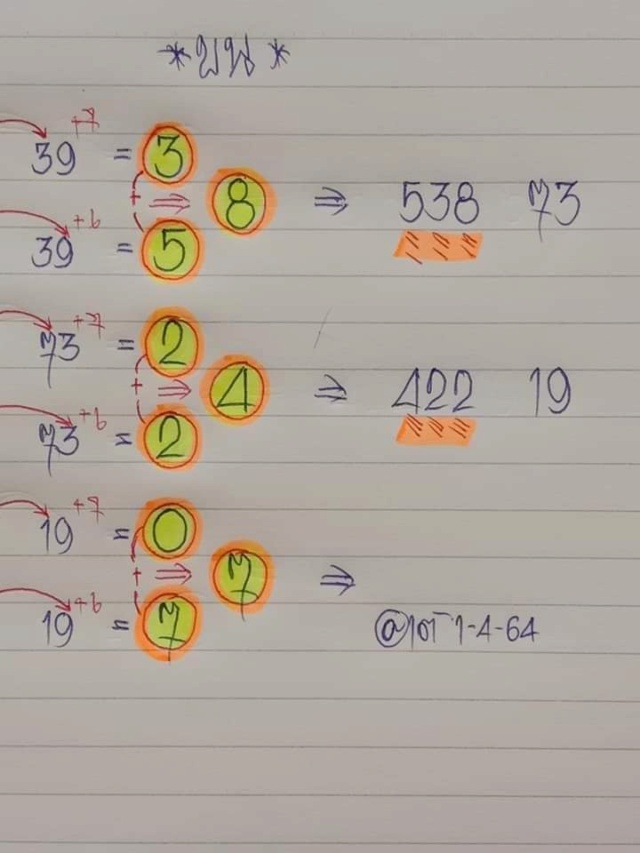 *บน*
39 +7 = 3
+ ⇒ 8 ⇒ 538 73
39 +6 = 5
73 +7 = 2
+ ⇒ 4 ⇒ 422 19
73 +6 = 2
19 +7 = 0
+ ⇒ 7 ⇒
19 +6 = 7
1-4-64